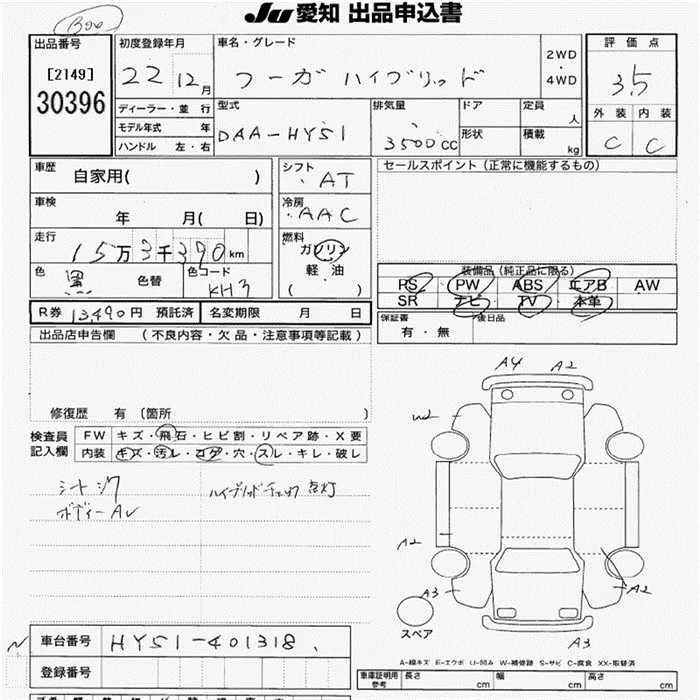 JU愛知 出品申込書
出品番号
[2149]
30396
初度登録年月
22 12月
ディーラー・並行
モデル年式 年
ハンドル 左・右
車名・グレード
フーガ ハイブリッド
2WD
・
4WD
型式
DAA-HY51
排気量
3500cc
ドア
定員
人
形状
積載
kg
評価点
3.5
外装 内装
C C
車歴
自家用( )
車検
年 月( 日)
走行
15万3千390km
色
黒
色替
色コード
KH3
シフト
AT
冷房
AAC
燃料
ガソリン
軽油
( )
セールスポイント (正常に機能するもの)
装備品 (純正品に限る)
PS PW ABS エアB AW
SR ナビ TV 本革
保証書
有・無
後日品
R券 13,490円 預託済
名変期限 月 日
出品店申告欄 (不良内容・欠品・注意事項等記載)
修復歴 有 (箇所 )
検査員
記入欄
FW キズ・飛石・ヒビ割・リペア跡・X要
内装 キズ・汚レ・コゲ・穴・スレ・キレ・破レ
シートシワ
ボディーAU
ハイブリッドチェック 点灯
A4 A2
W2
A2
A3
A2
A3
スペア
A-線キズ E-エクボ U-凹み W-補修跡 S-サビ C-腐食 XX-取替済
車台番号
HY51-401318
登録番号
車庫証明用
参考
長さ cm
幅 cm
高さ cm